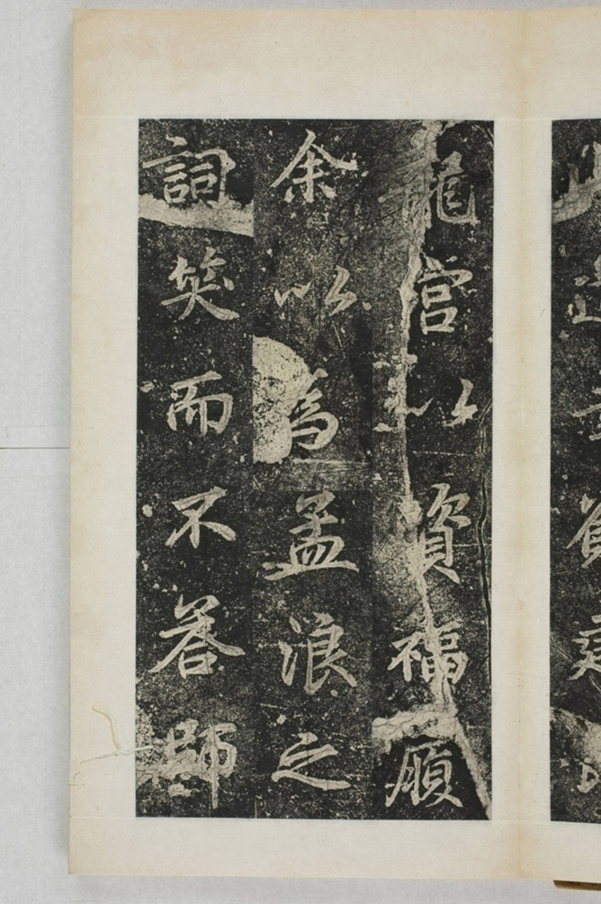 龍宮以資福顧
余以為孟浪之
詞笑而不答師